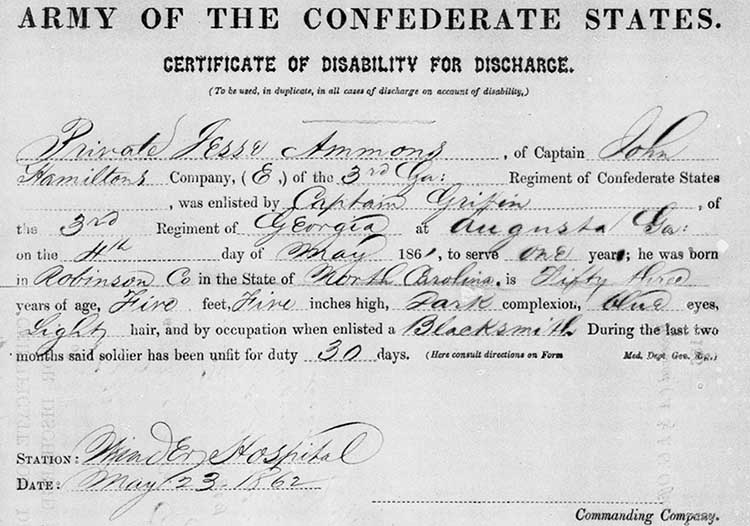 ARMY OF THE CONFEDERATE STATES.
CERTIFICATE OF DISABILITY FOR DISCHARGE.
(To be used, in duplicate, in all cases of discharge on account of disability,)
Private Jesse Ammons, of Captain John
Hamiltons Company, (E,) of the 3rd Ga: Regiment of Confederate States
, was enlisted by Captain Grifin, of
the 3rd Regiment of Georgia at Augusta Ga:
on the 4th day of May 1861, to serve one years; he was born
in Robinson Co in the State of North Carolina, is Fifty three
years of age, Five feet, Five inches high, Dark complexion, blue eyes,
Light hair, and by occupation when enlisted a Blacksmith. During the last two
months said soldier has been unfit for duty 30 days. (Here consult directions on Form Med. Dept. Gen.
STATION: Winder Hospital
DATE: May 23 1862
Commanding Company.